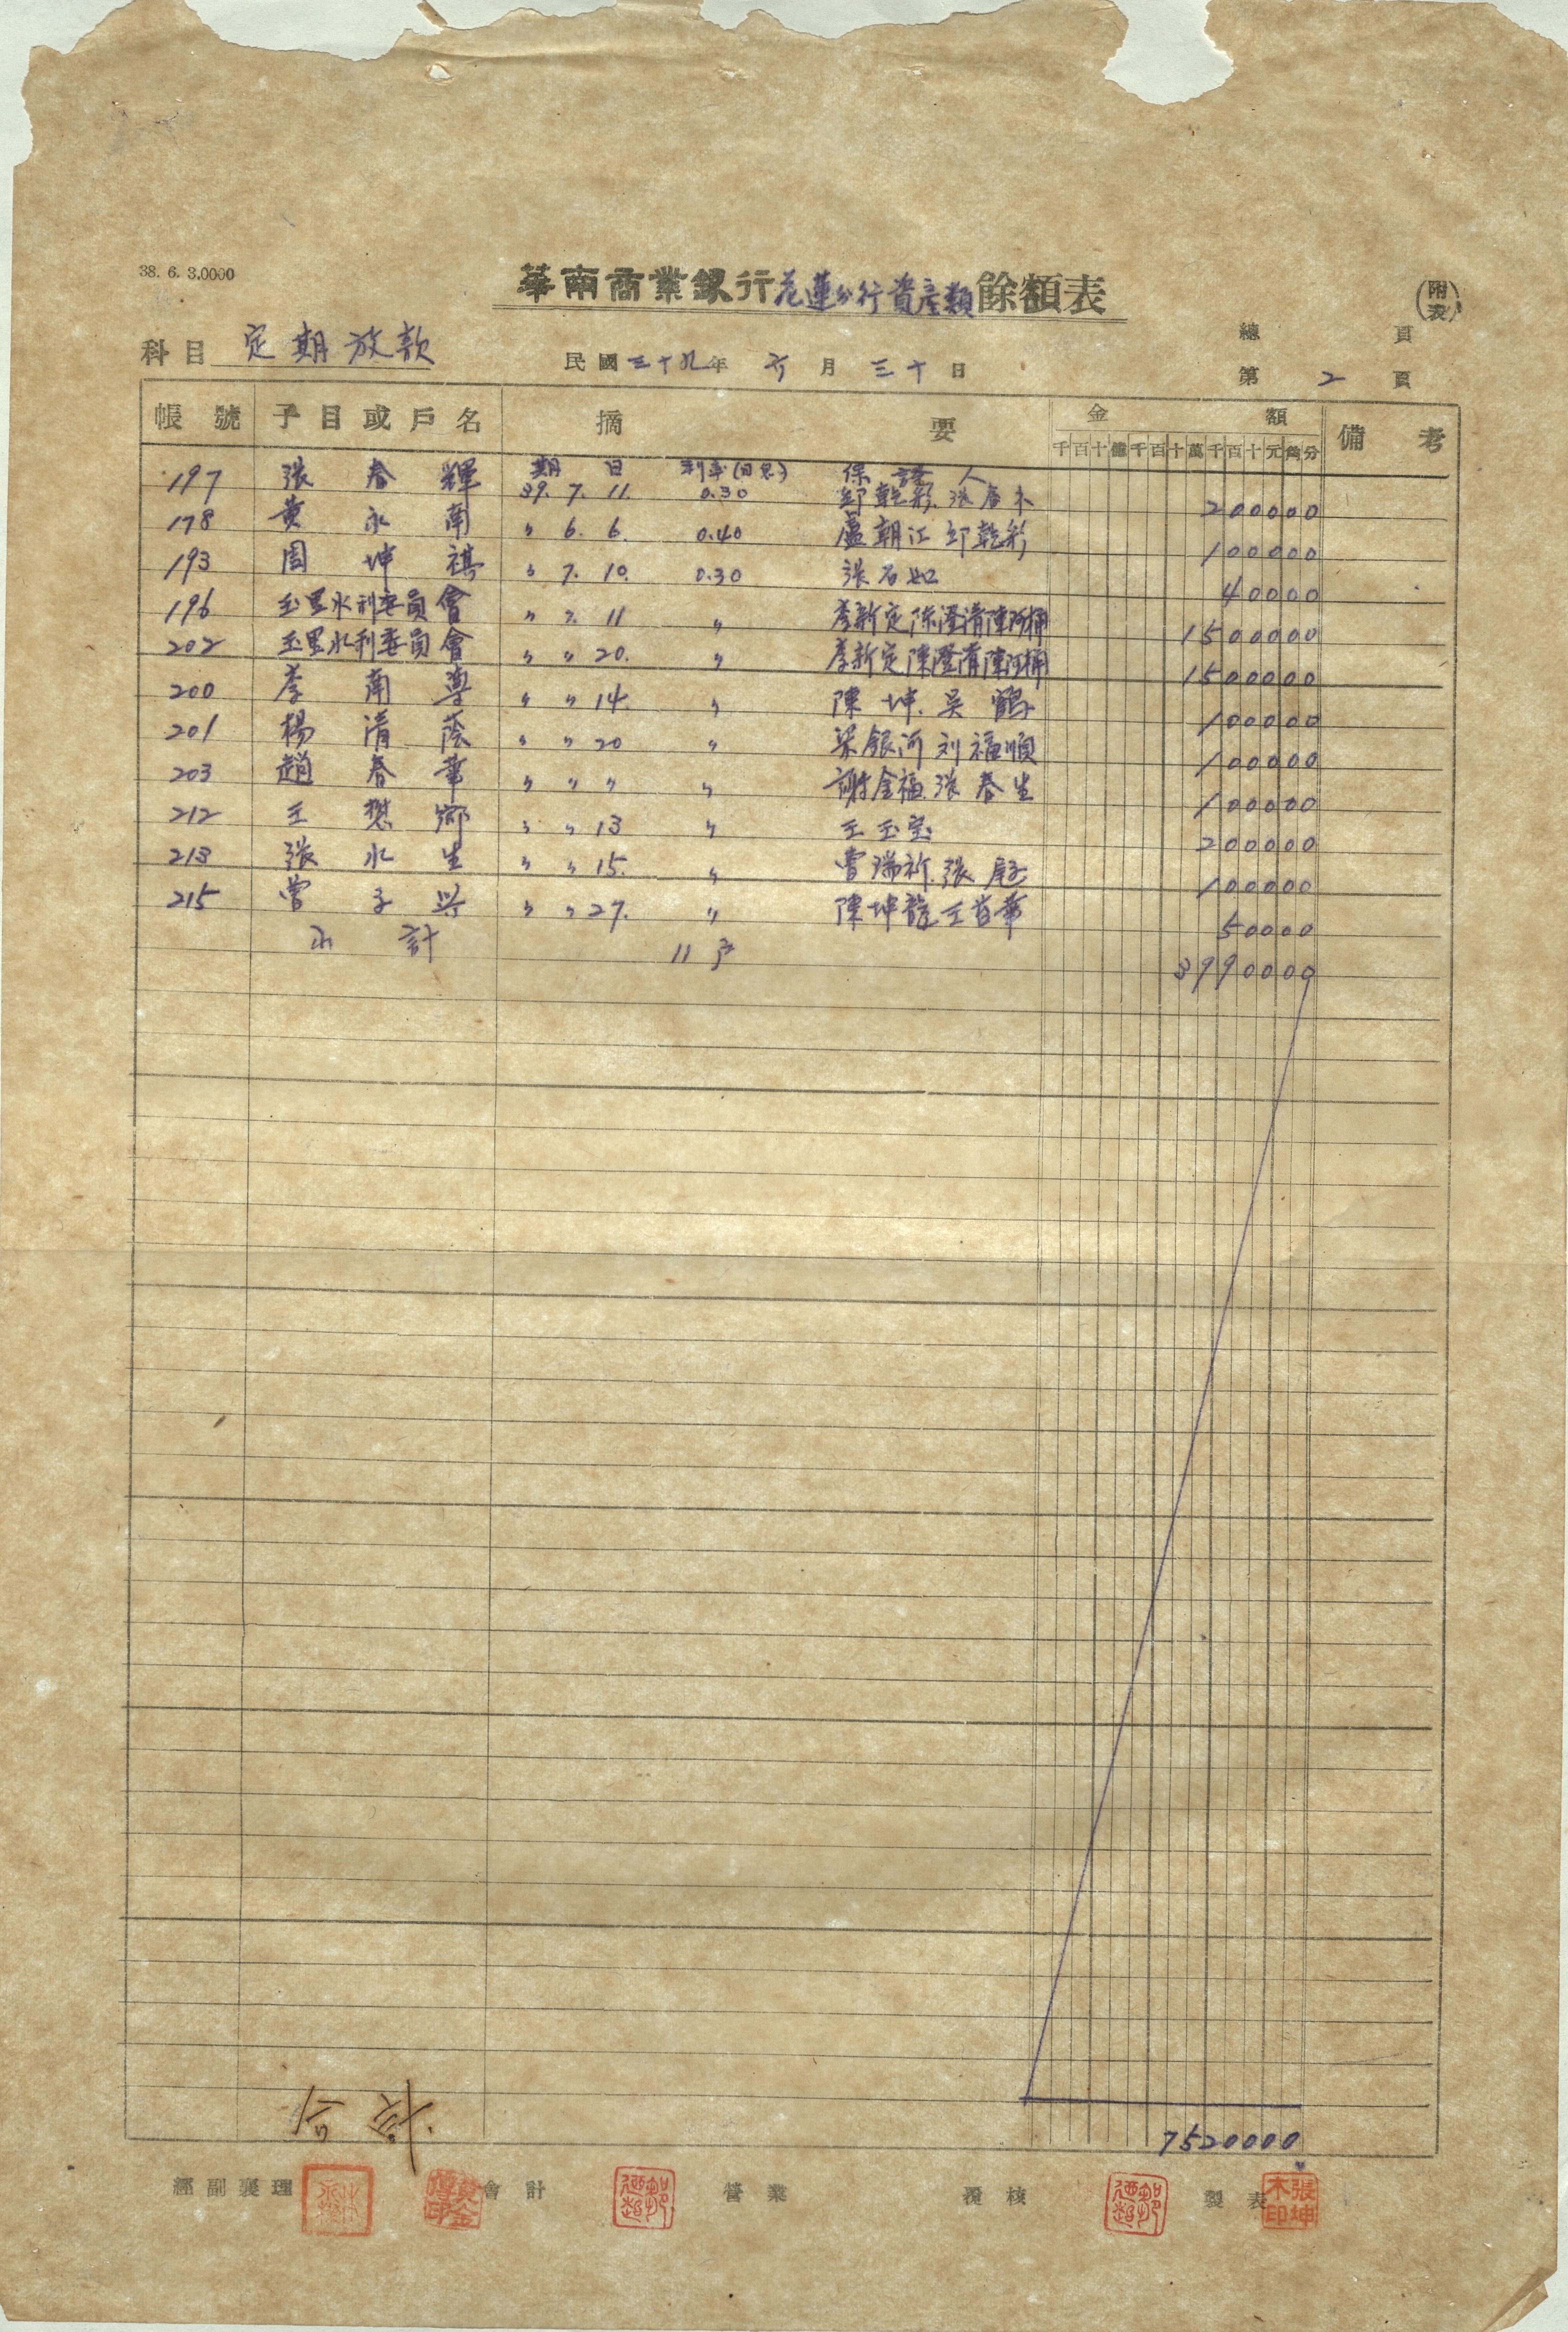 38. 6. 3.0000
華南商業銀行花蓮分行資產類餘額表
(附表)
科目 定期放款
民國三十九年 六月 三十日
總 頁
第 2 頁
帳號 子目或戶名 摘要 金額 備考
千百十億千百十萬千百十元角分
期日 利率(日息) 保證人
197 張春輝 39. 7. 11. 0.30 邱乾彩. 張春木 200000
178 黃永南 〃 6. 6. 0.40 盧朝江 邱乾彩 100000
193 周坤祺 〃 7. 10. 0.30 張石如 40000
196 玉里水利委員會 〃 7. 11 〃 李新定 陳澄清 陳阿桶 1500000
202 玉里水利委員會 〃 〃 20. 〃 李新定 陳澄清 陳阿桶 1500000
200 李南 〃 〃 14. 〃 陳坤. 吳鶴 100000
201 楊清蔭 〃 〃 20 〃 梁銀河 刘福順 100000
203 趙春華 〃 〃 〃 〃 謝金福 張春生 100000
212 王懋鄉 〃 〃 13 〃 王玉宝 200000
213 張水生 〃 〃 15. 〃 曾瑞祈. 張 100000
215 曾子兴 〃 〃 27. 〃 陳坤龍 王首華 50000
小計 11戶 3990000
7520000
經副襄理 會計 營業 覆核 製表
張坤木印